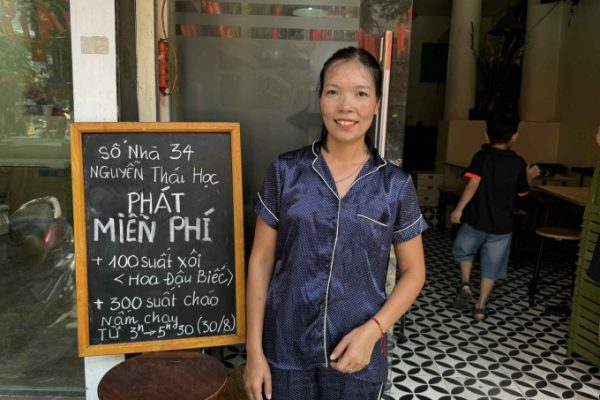 Số Nhà 34
NGUYỄN Thái Học
PHÁT
MIỄN PHÍ
+ 100 suất xôi
< Hoa Đậu Biếc >
+ 300 suất cháo
Nấm chay
TỪ 3h → 5h30 (30/8)